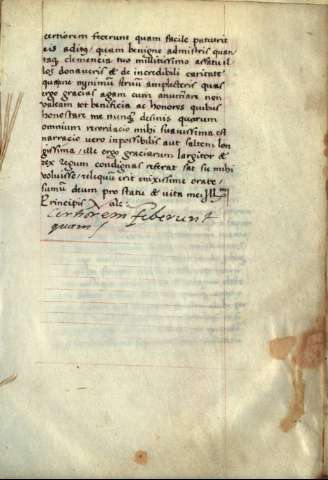 certiorem fecerunt quam facile patuerit
eis aditus / quam benigne admissi quan
taq clemencia tuo mellitissimo affatu il
los donaveris & de incredibili caritate /
quaque minimum servum amplecteris quas
ergo gracias agam cum anumerare non
valeam tot beneficia ac honores quibus
honestare me nunq desinis quorum
omnium recordacio mihi suavissima est
narracio vero inpossibilis aut saltem lon
gissima / ille ergo graciarum largitor &
rex regum condignas referat sat sit mihi
voluisse / reliquum erit enixissime orare /
summum deum pro statu & vita mei Ill
Principis Vale
certiorem feberunt
quam /